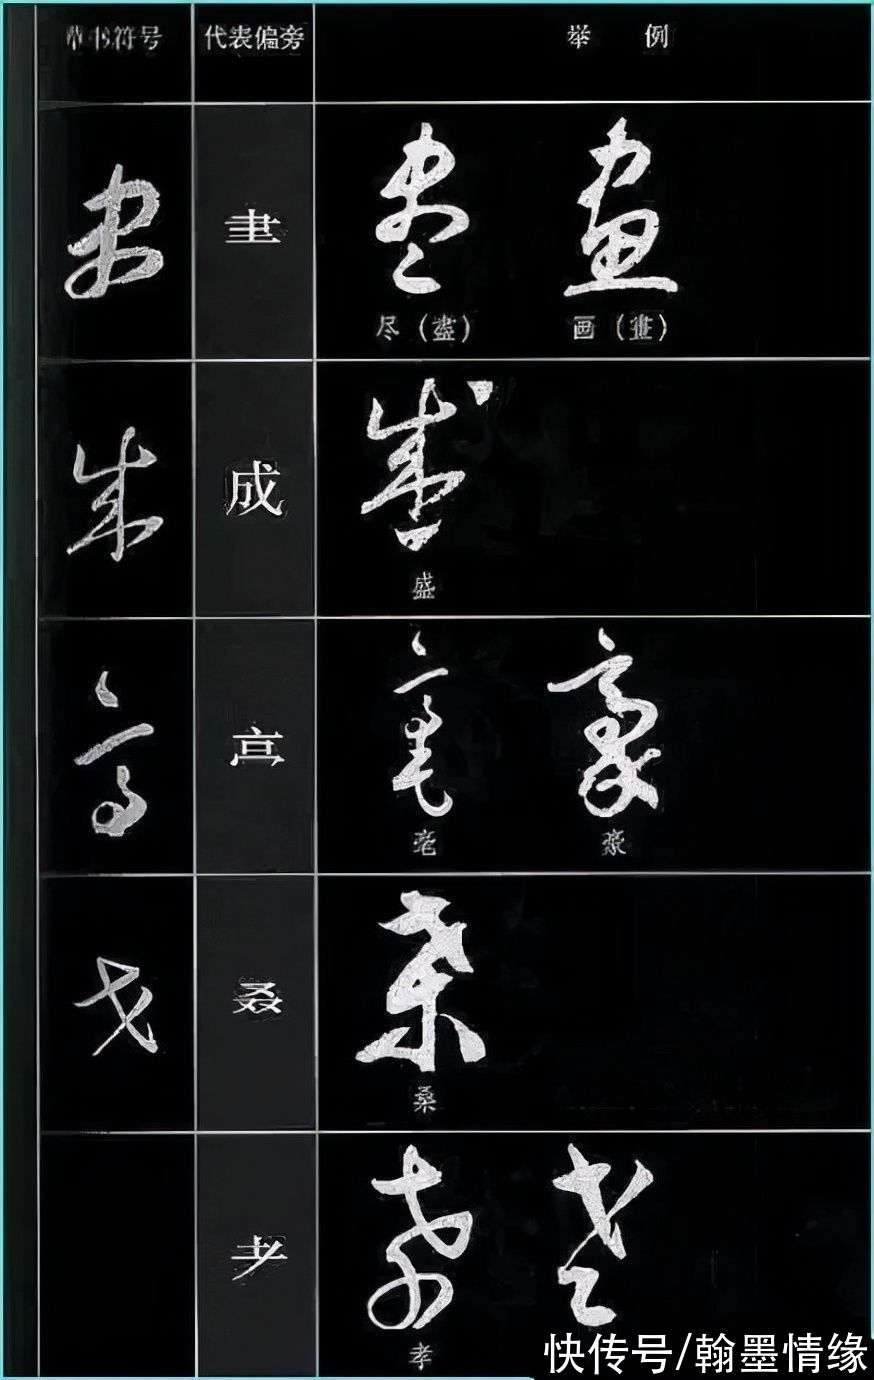 草书符号 代表偏旁 举例
聿 尽（盡） 画（畫）
成 盛
亠 毫 豪
叒 桑
耂 孝
快传号/翰墨情缘